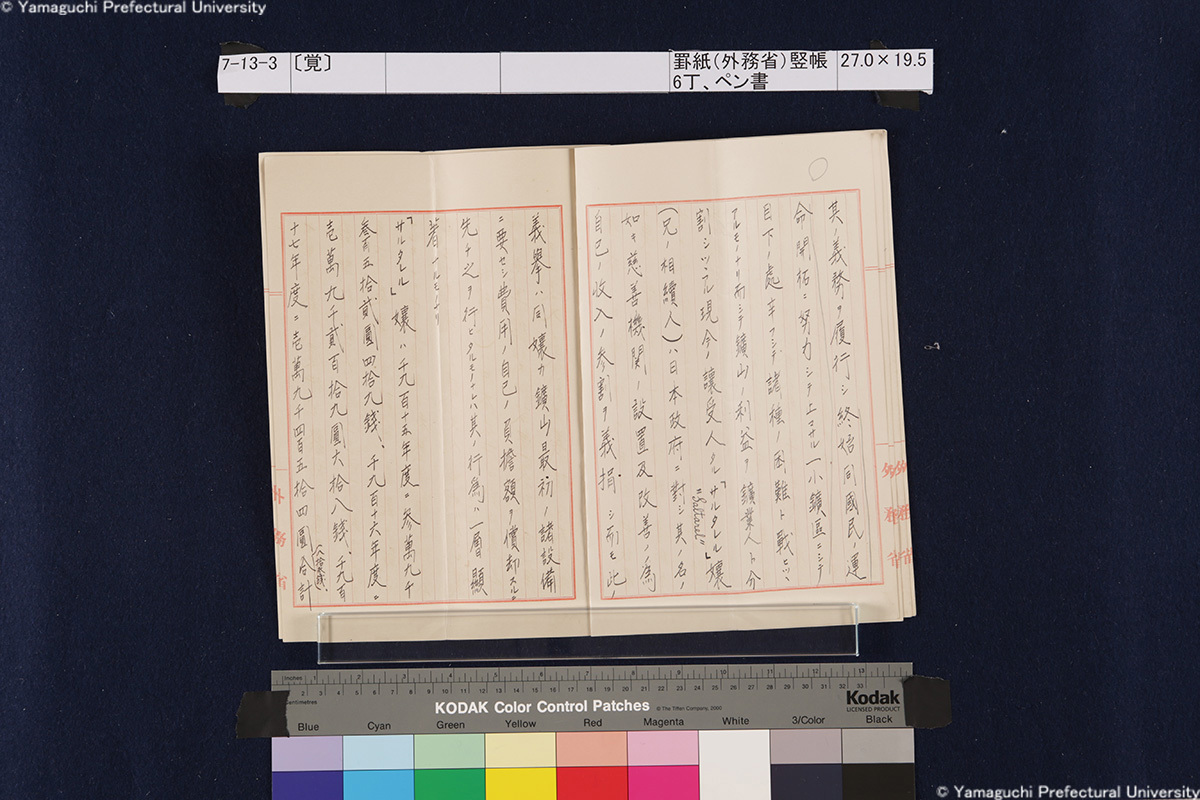 © Yamaguchi Prefectural University
7-13-3
〔覚〕
罫紙(外務省)竪帳
6丁、ペン書
27.0×19.5
其ノ義務ヲ履行シ終始同國民ノ運
命開拓ニ努力シテ止マサル一小鑛區ニシテ
目下ノ處辛フシテ諸種ノ困難ト戰ヒツヽ
アルモノナリ而シテ鑛山ノ利益ヲ鑛業人ト分
割シツヽアル現今ノ讓受人タル「サルタレル」孃
"Saltarel"
(兄ノ相續人)ハ日本政府ニ對シ其ノ名ノ
如キ慈善機關ノ設置及改善ノ為
自己ノ收入ノ参割ヲ義捐シ而モ此ノ
義擧ハ同孃カ鑛山最初ノ諸設備
ニ要セシ費用ノ自己ノ負擔額ヲ償却スルニ
先チ之ヲ行ヒタルモノナレハ其ノ行為ハ一層顯
著ナルモノナリ
「サルタレル」孃ハ千九百十五年度ニ参萬九千
参百五拾貳圓四拾九錢、千九百十六年度ニ
壱萬九千貳百拾九圓六拾八錢、千九百
十七年度ニ壱萬九千四百五拾四圓
合計
外
務
省
inches 1 2 3 4 5 6 7 8
Centimetres
KODAK Color Control Patches
© The Tiffen Company, 2000
Kodak
LICENSED PRODUCT
Blue Cyan Green Yellow Red Magenta White 3/Color Black
© Yamaguchi Prefectural University